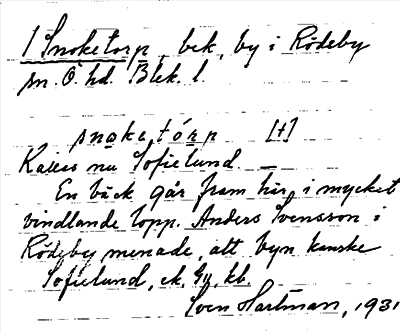 1 Snoketorp, bek, by i Rödeby
sn. Ö. hd. Blek. l.
snoketórp [+]
Kallas nu Sofielund —
En bäck går fram här, i mycket
vindlande lopp. Anders Svensson i
Rödeby menade, att byn kanske
Sofielund, ek. kb.
Sven Hartman, 1931